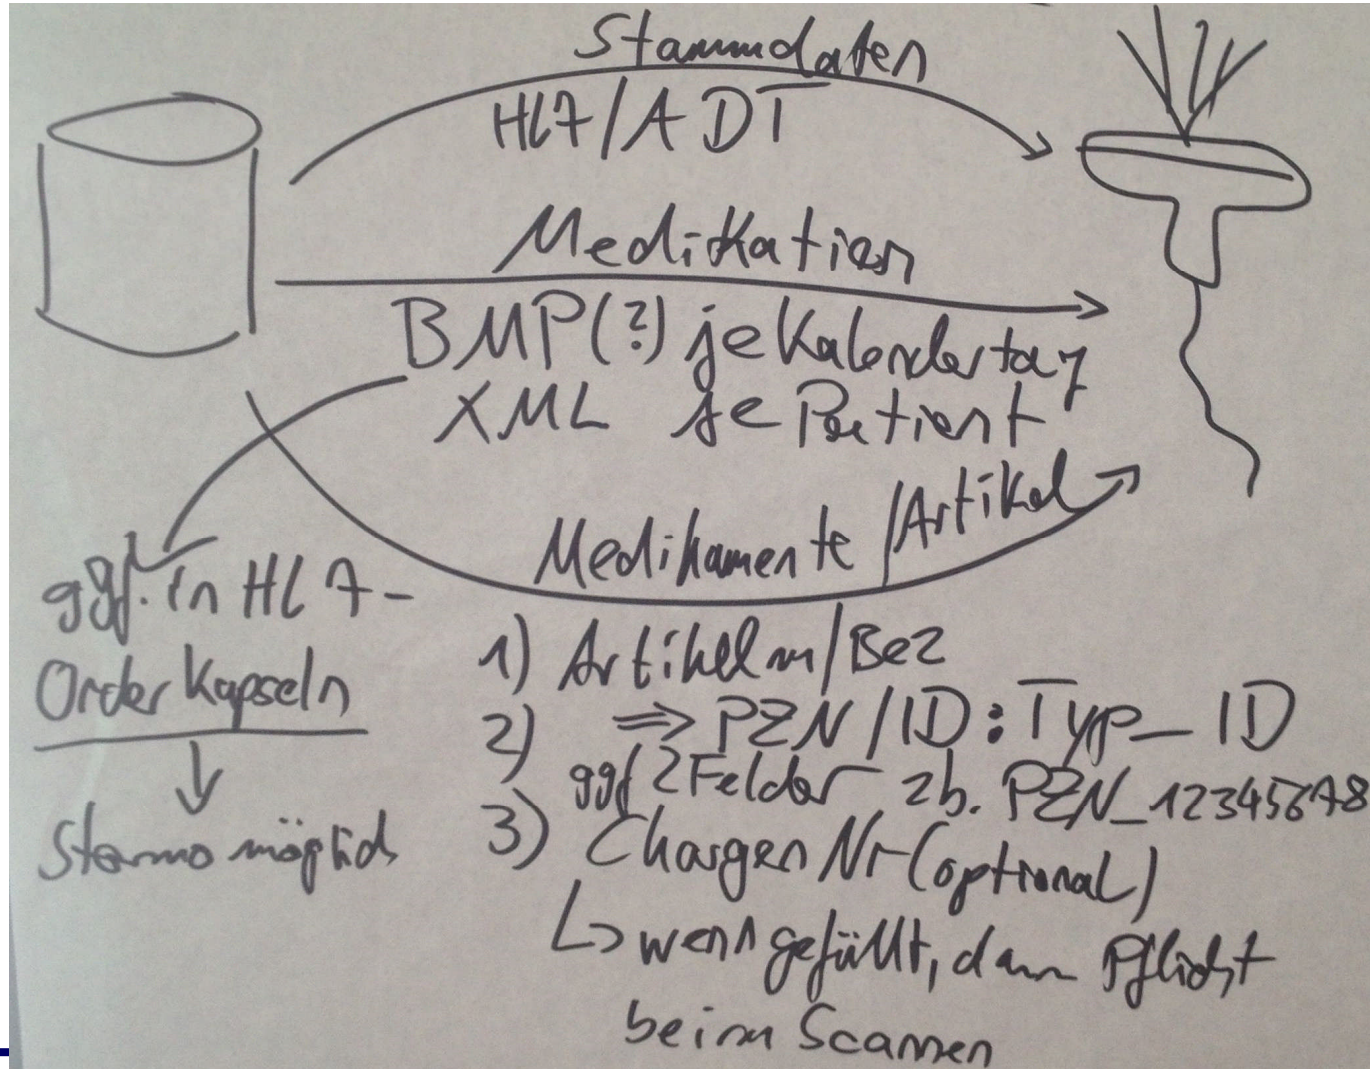 Stammdaten
HL7/ADT
Medikation
BMP(?) je Kalendertag
XML je Patient
Medikamente/Artikel
ggf. in HL7-
Order Kapseln
Storno möglich
1) Artikel m/Bez
2) ⇒ PZN/ID: Typ_ID
ggf 2 Felder zb. PZN_12345678
3) Chargen Nr (optional)
↳ wenn gefüllt, dann Pflicht
beim Scannen